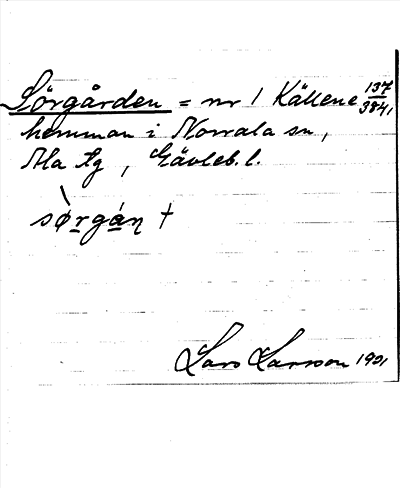 Sörgården = nr 1 Källene 137/3841
hemman i Norrala sn,
Ala tg, Gävleb. l.
sø̀rgán †
Lars Larsson 1921